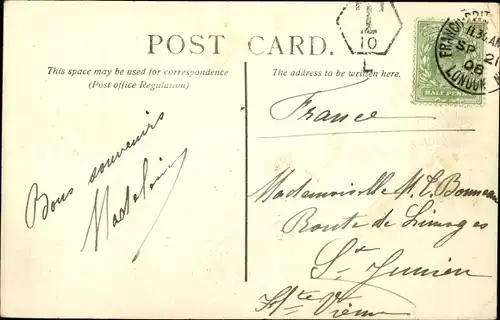 POST CARD.
This space may be used for correspondence
(Post office Regulation)
The address to be written here.
T
10
L
11.30 AM
SP 21
06
LONDON
HALF PENNY
France
Bons souvenirs
Madeleine
Mademoiselle M. E. Bonneau
Route de Limoges
St Junien
Hte Vienne